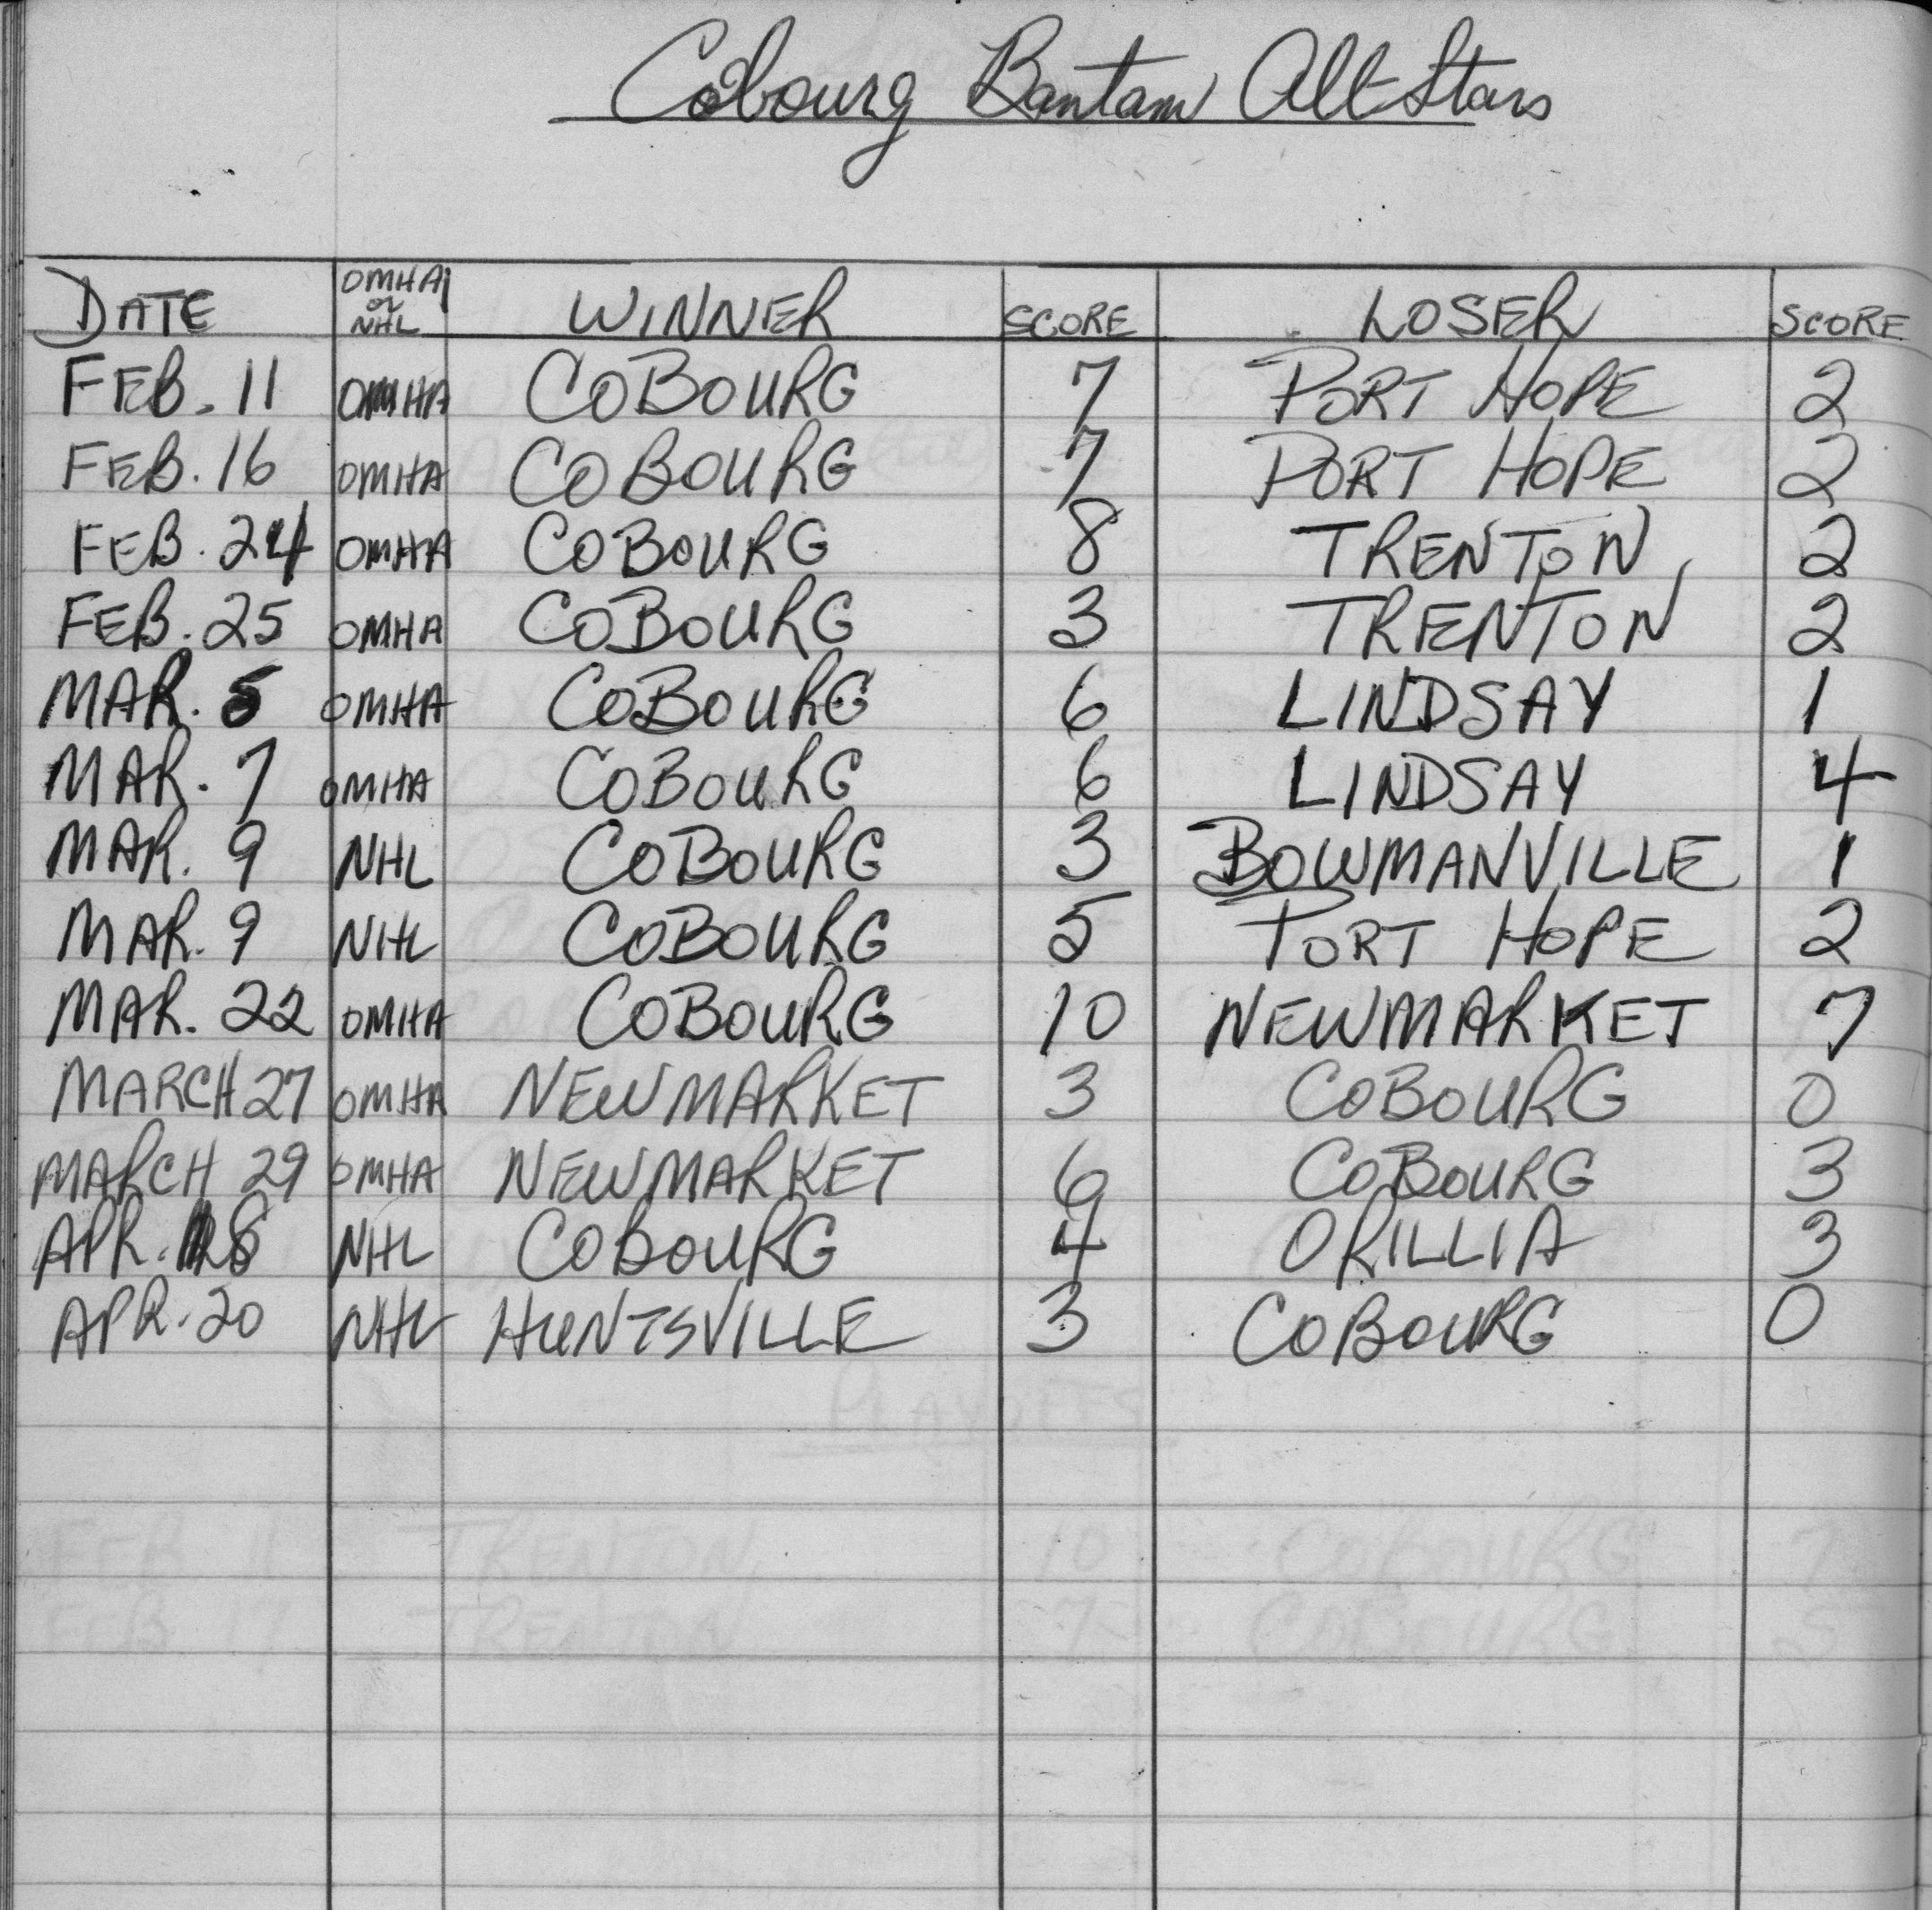 Cobourg Bantam All Stars
DATE OMHA or NHL WINNER SCORE LOSER SCORE
FEB. 11 OMHA COBOURG 7 PORT HOPE 2
FEB. 16 OMHA COBOURG 7 PORT HOPE 2
FEB. 24 OMHA COBOURG 8 TRENTON 2
FEB. 25 OMHA COBOURG 3 TRENTON 2
MAR. 5 OMHA COBOURG 6 LINDSAY 1
MAR. 7 OMHA COBOURG 6 LINDSAY 4
MAR. 9 NHL COBOURG 3 BOWMANVILLE 1
MAR. 9 NHL COBOURG 5 PORT HOPE 2
MAR. 22 OMHA COBOURG 10 NEWMARKET 7
MARCH 27 OMHA NEWMARKET 3 COBOURG 0
MARCH 29 OMHA NEWMARKET 6 COBOURG 3
APR. NHL COBOURG 4 ORILLIA 3
APR. 20 NHL HUNTSVILLE 3 COBOURG 0
PLAYOFFS
FEB 11 TRENTON 10 COBOURG 7
FEB 17 TRENTON 7 COBOURG 5